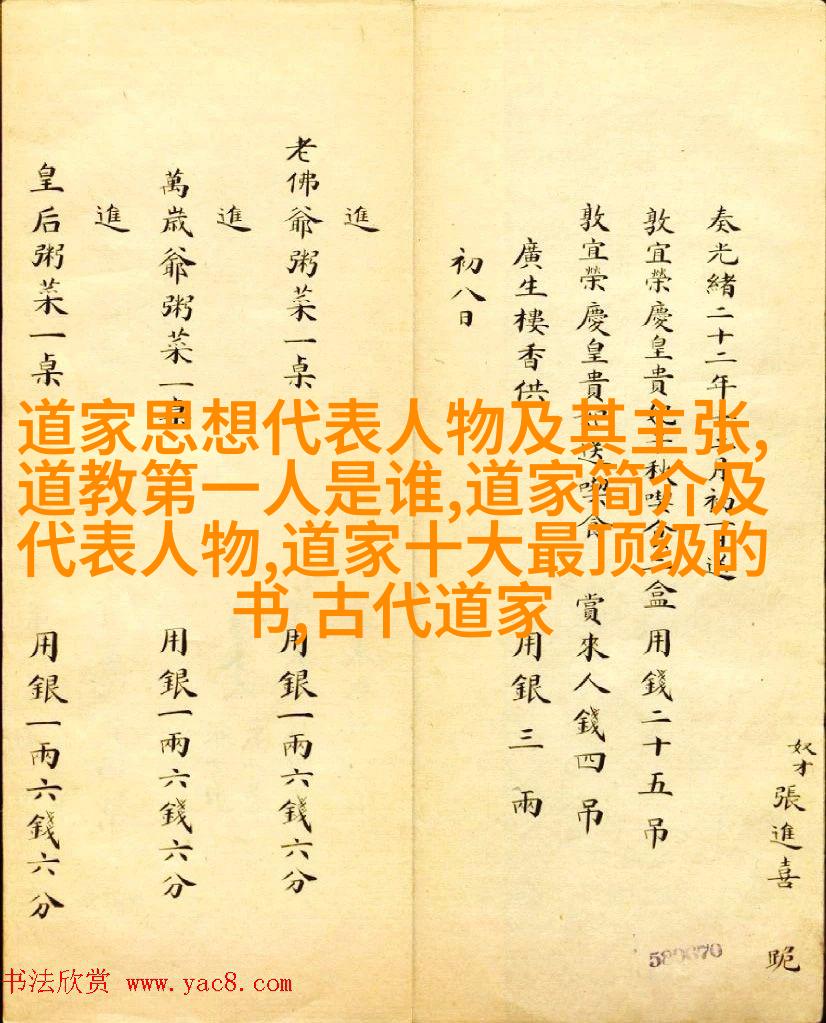 奴才張進喜 跪
奏光緒二十二年十二月初一日送
敦宜榮慶皇貴妃千秋喫食二盒用錢二十五吊
敦宜榮慶皇貴妃送喫食 賞來人錢四吊
廣生樓香供 用銀三兩
初八日
進
老佛爺粥菜一桌 用銀一兩六錢六分
進
萬歲爺粥菜一桌 用銀一兩六錢六分
進
皇后粥菜一桌 用銀一兩六錢六分
道家思想代表人物及其主张,
道教第一人是谁,道家简介及
代表人物,道家十大最顶级的
书,古代道家
580670
书法欣赏 www.yac8.com